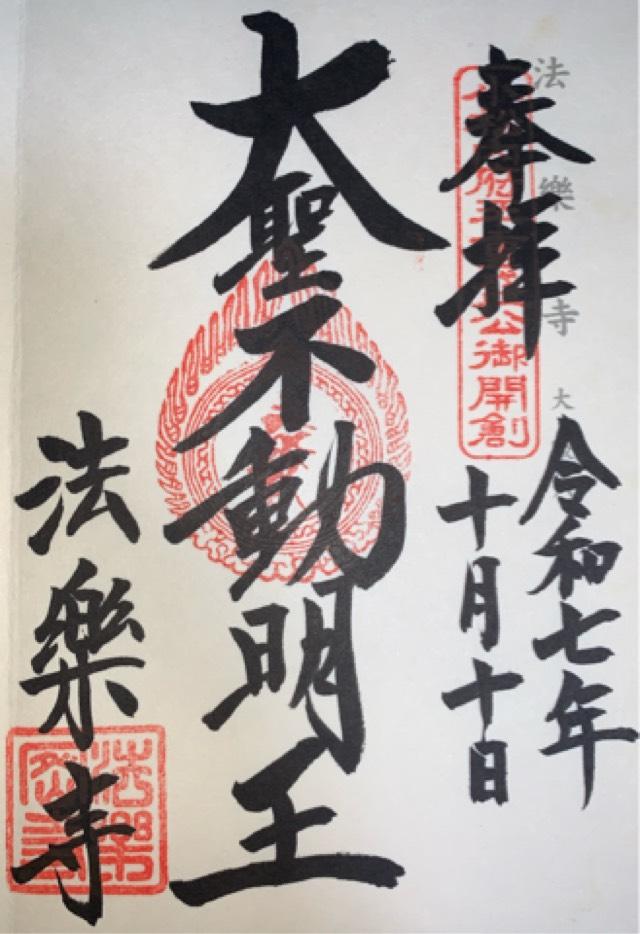 法樂寺 大
奉拝
公御開創
令和七年
十月十日
大聖不動明王
法樂寺
法樂